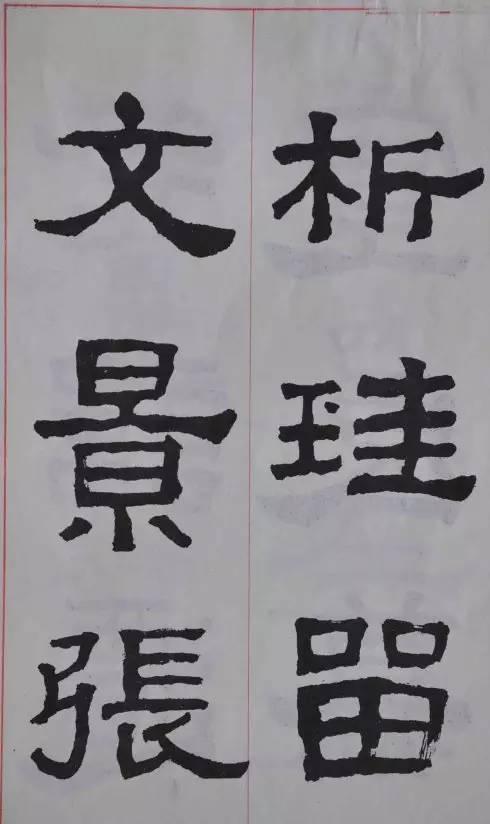 析珪留
文景張